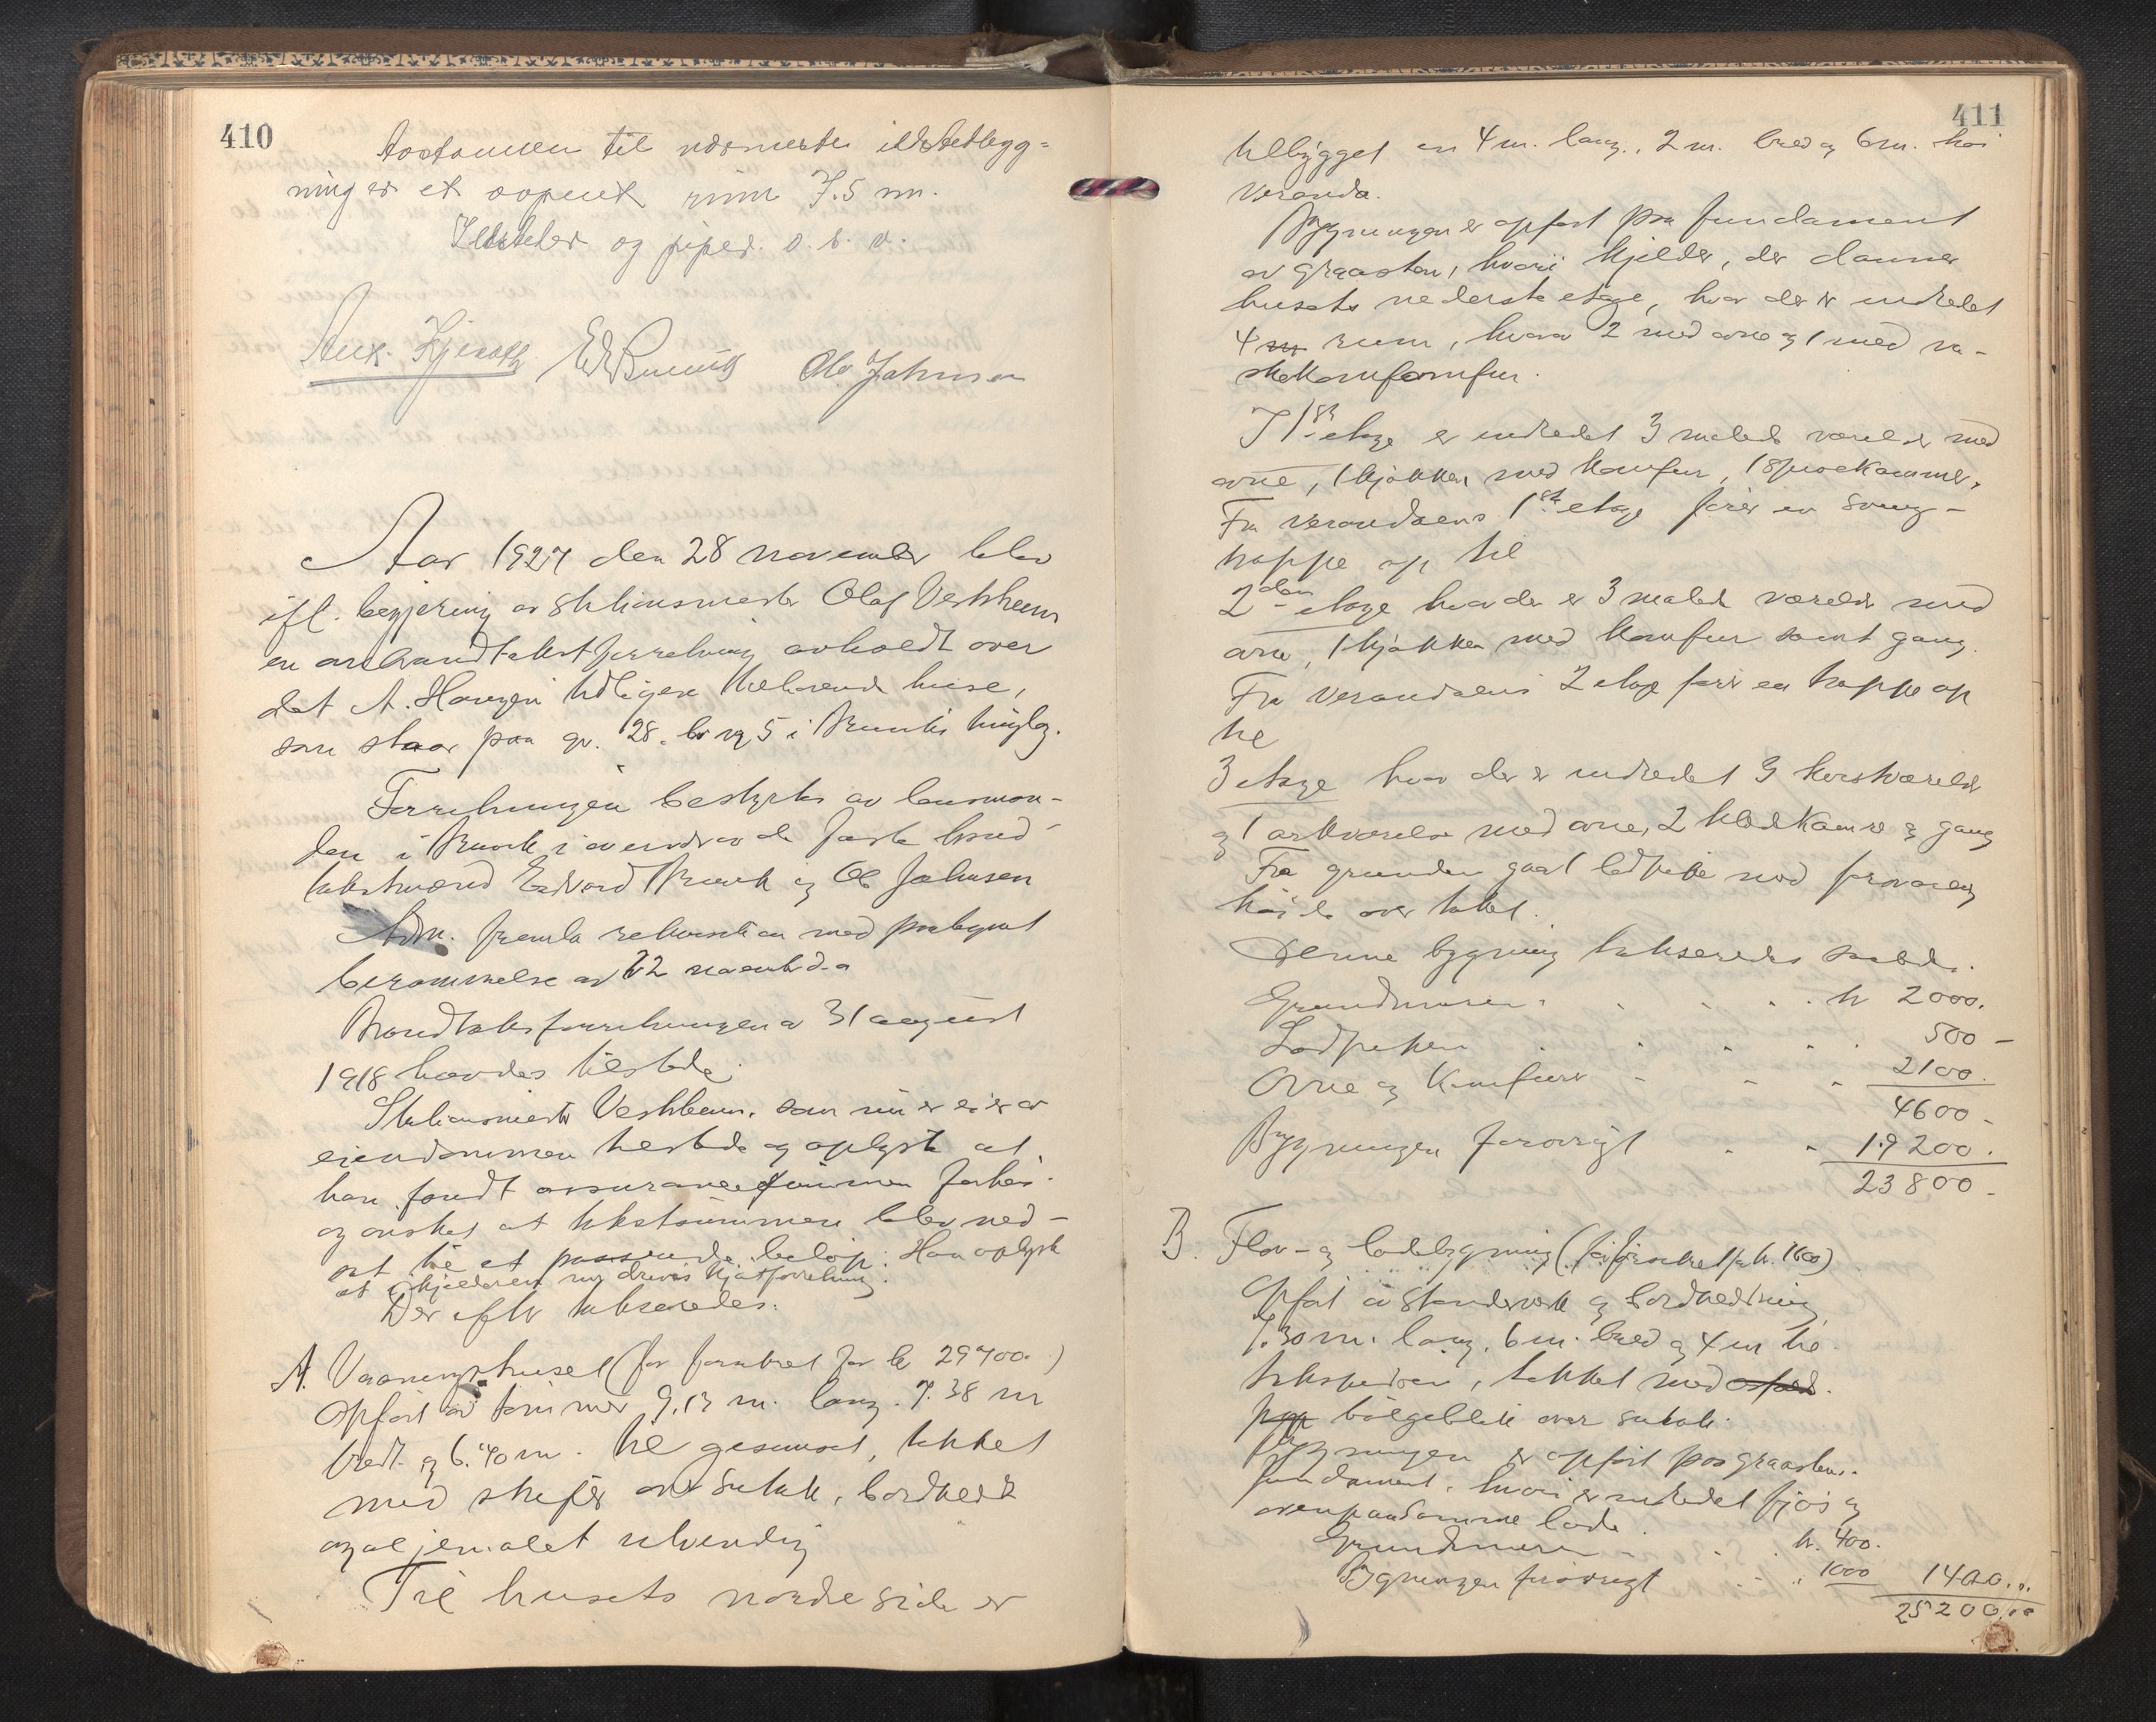 410
til nærmeste ildstedlegg=
ning er et aapent rum 7.5 m.
Ildsteder og piper o. s. v.
Alex. Kjerulf Ed Bruvik Ole Johnsen
Aar 1927 den 28 november blev
ifl. begjæring av stationsmester Olaf Vestrheim
en ombrandtakstforretning avholdt over
det A. Haugen tidligere tilhørende huse,
som staar paa gr. 28. br nr 5 i Bruvik tinglag.
Forretningen bestyrtes av lensman-
den i Bruvik i overvær av de faste brand
takstmænd Edvard Bruvik og Ole Johnsen
Adm. fremla rekvisition med paategnet
berammelse av 22 novemb. d.a
Brandtakstforretningen av 31 august
1918 havdes tilstede.
Stationsmester Vestrheim, som nu er eier av
eiendommen tilstede og oplyste at
han fandt assurancesummen for høi.
og ønsket at takstsummen blev ned-
sat til et passende beløp. Han oplyste
at i kjelderen nu drives kjøtforretning.
Der efter takseredes:
A. Vaaningshuset (før forsikret for kr 29700.)
Opført av tømmer, 9.13 m. lang. 7.38 m
bredt og 6.40 m. til gesimset, tækket
med skifer over sutak, bordklædt
og oljemalet utvendig
Til husets nordre side er
411
tilbygget en 4 m. lang, 2 m. bred og 6 m. høi
veranda.
Bygningen er opført paa fundament
av graasten, hvori kjelder, der danner
husets nederste etage, hvor der er indredet
4 m rum, hvorav 2 med ovne og 1 med va-
skekomfur.
I 1ste etage er indredet 3 malede værelser med
ovne, 1 kjøkken med komfur, 1 spisekammer.
Fra verandaens 1ste etage fører en sving-
trappe op til
2den etage hvor der er 3 malede værelser med
ovne, 1 kjøkken med komfur samt gang.
Fra verandaens 2 etage fører en trappe op
til
3 etage hvor der er indredet 3 kvistværelser
og 1 arkværelse med ovne, 2 klædkamre og gang
Fra grunden gaar 1 lodpipe med forsvarlig
høide over taket.
Denne bygning takseredes saaled.
Grundmuren . . . . kr 2000.
Lodpipen . . . . . 500 -
Ovne og komfurer - - - 2100.
4600 -
Bygningen forøvrigt - - 19200.
23800 -
B. Flor- og ladebygning (før forsikret for kr. 1600)
Opført av stenderverk og bordklædning
7.30 m. lang, 6 m. bred og 4 m til
taksperren, tækket med
papp bølgeblik over sutak.
Bygningen er opført paa graastens
fundament, hvori er indredet fjøs og
ovenpaa samme lade.
Grundmuren - - . kr. 400.
Bygningen forøvrigt - - " 1000 1400. "
25200.00